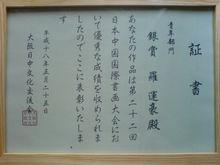 証書
青年部門
銀賞 羅運豪殿
あなたの作品は第二十二回
日本中国国際書画大会にお
いて優秀な成績を収められま
したのでここに表彰いたしま
す
平成十八年三月二十五日
大阪日中文化交流会